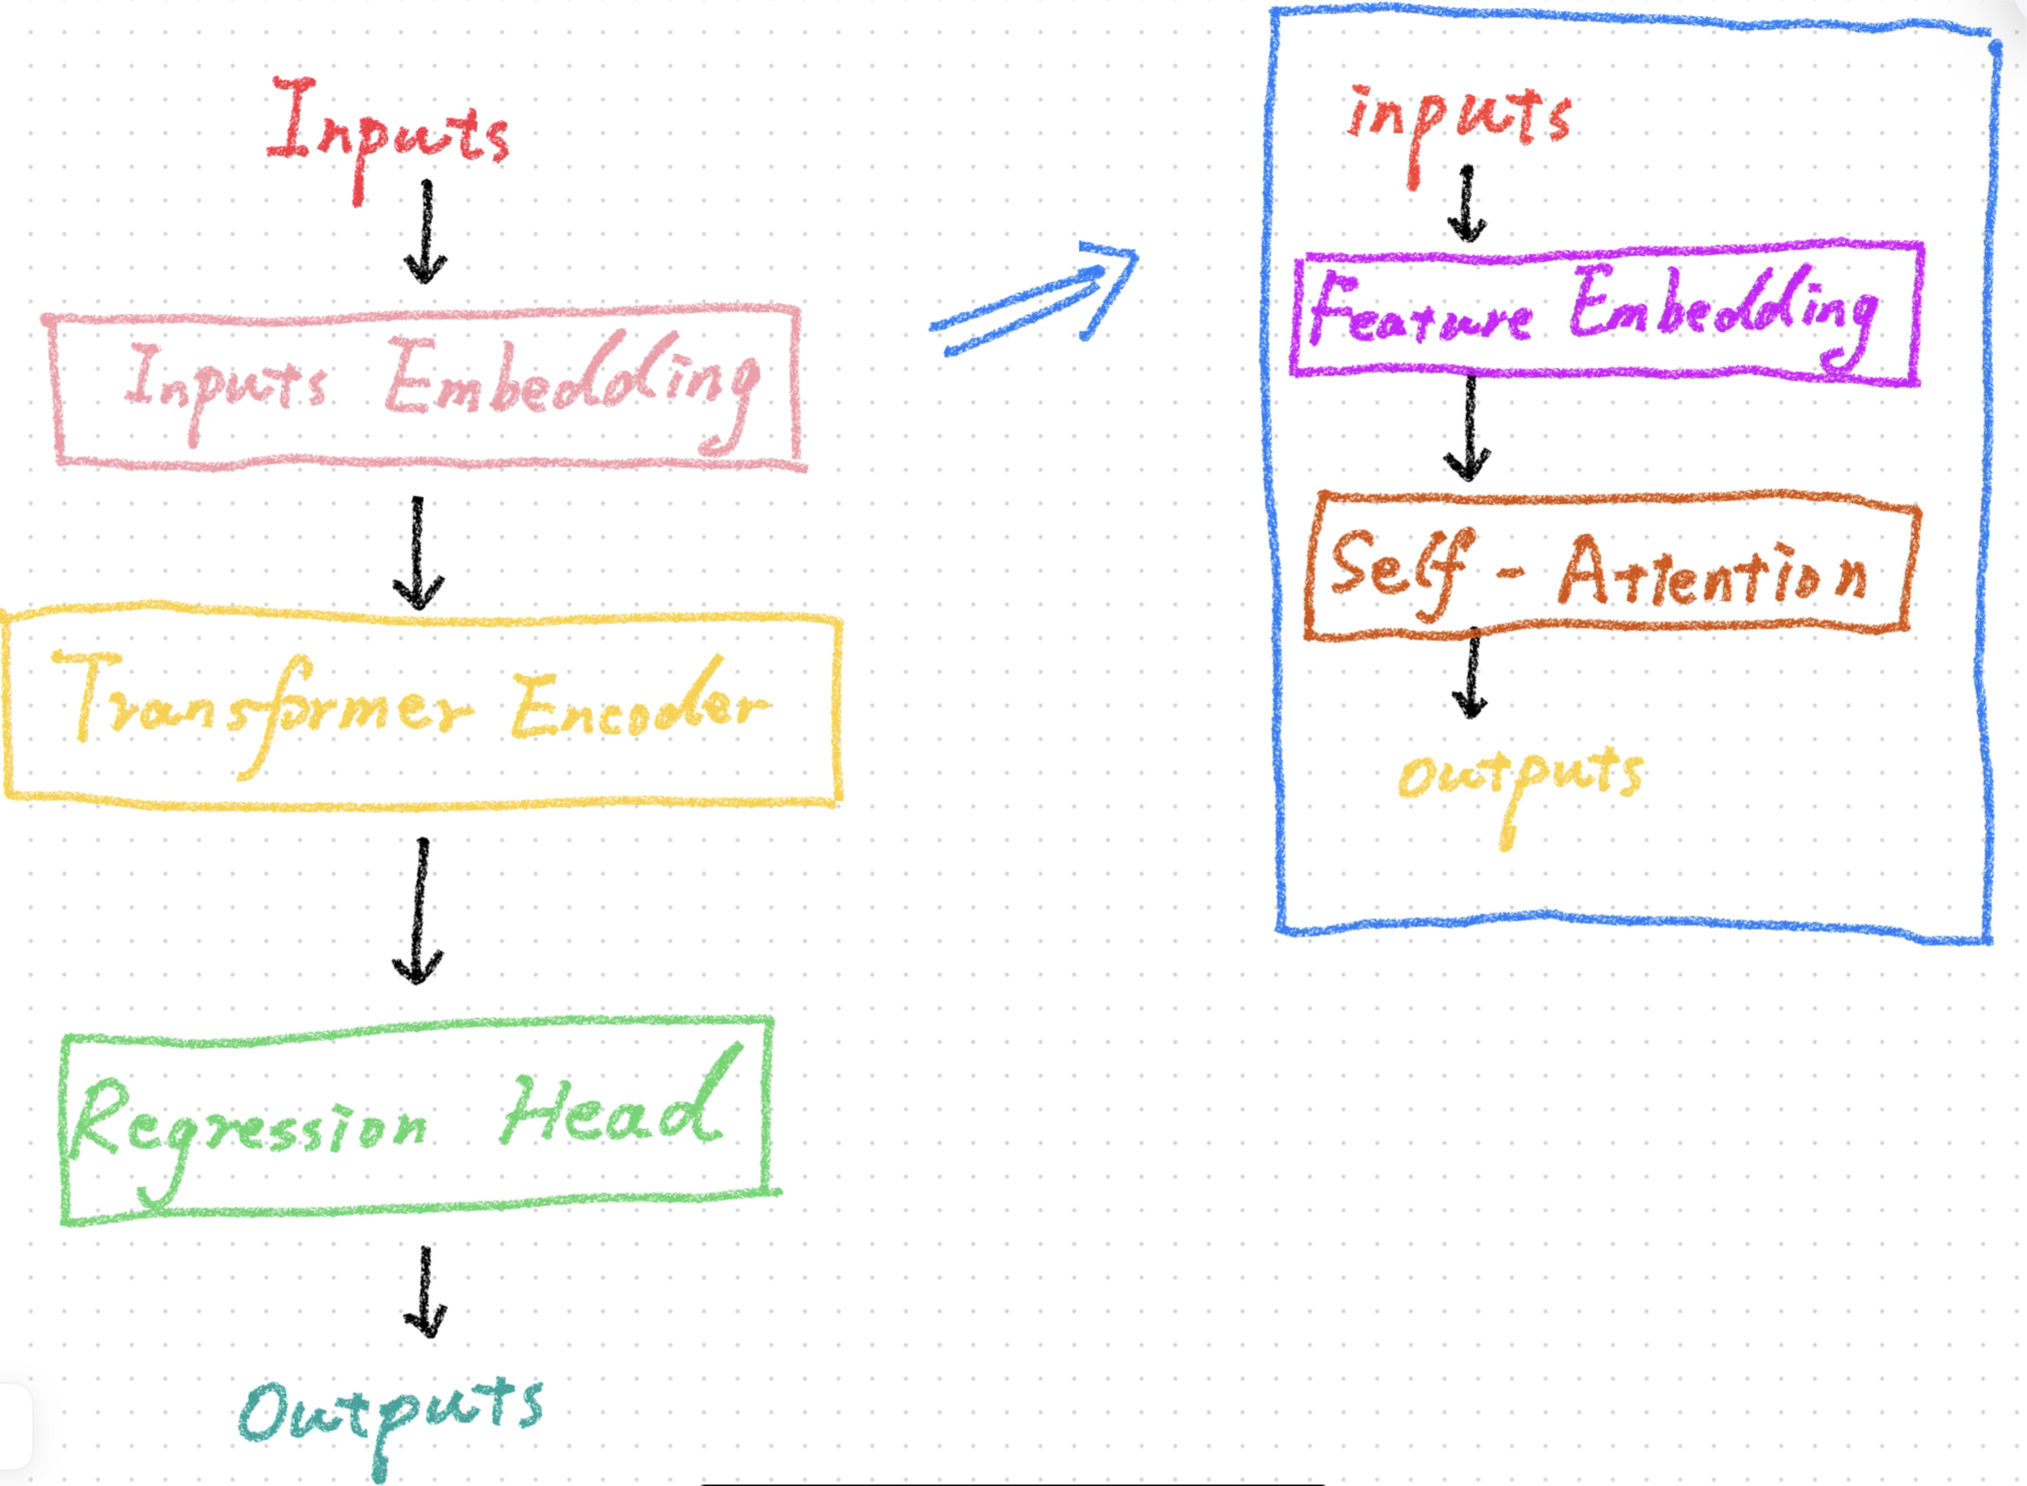 Inputs
Inputs Embedding
Transformer Encoder
Regression Head
Outputs
inputs
Feature Embedding
Self - Attention
outputs